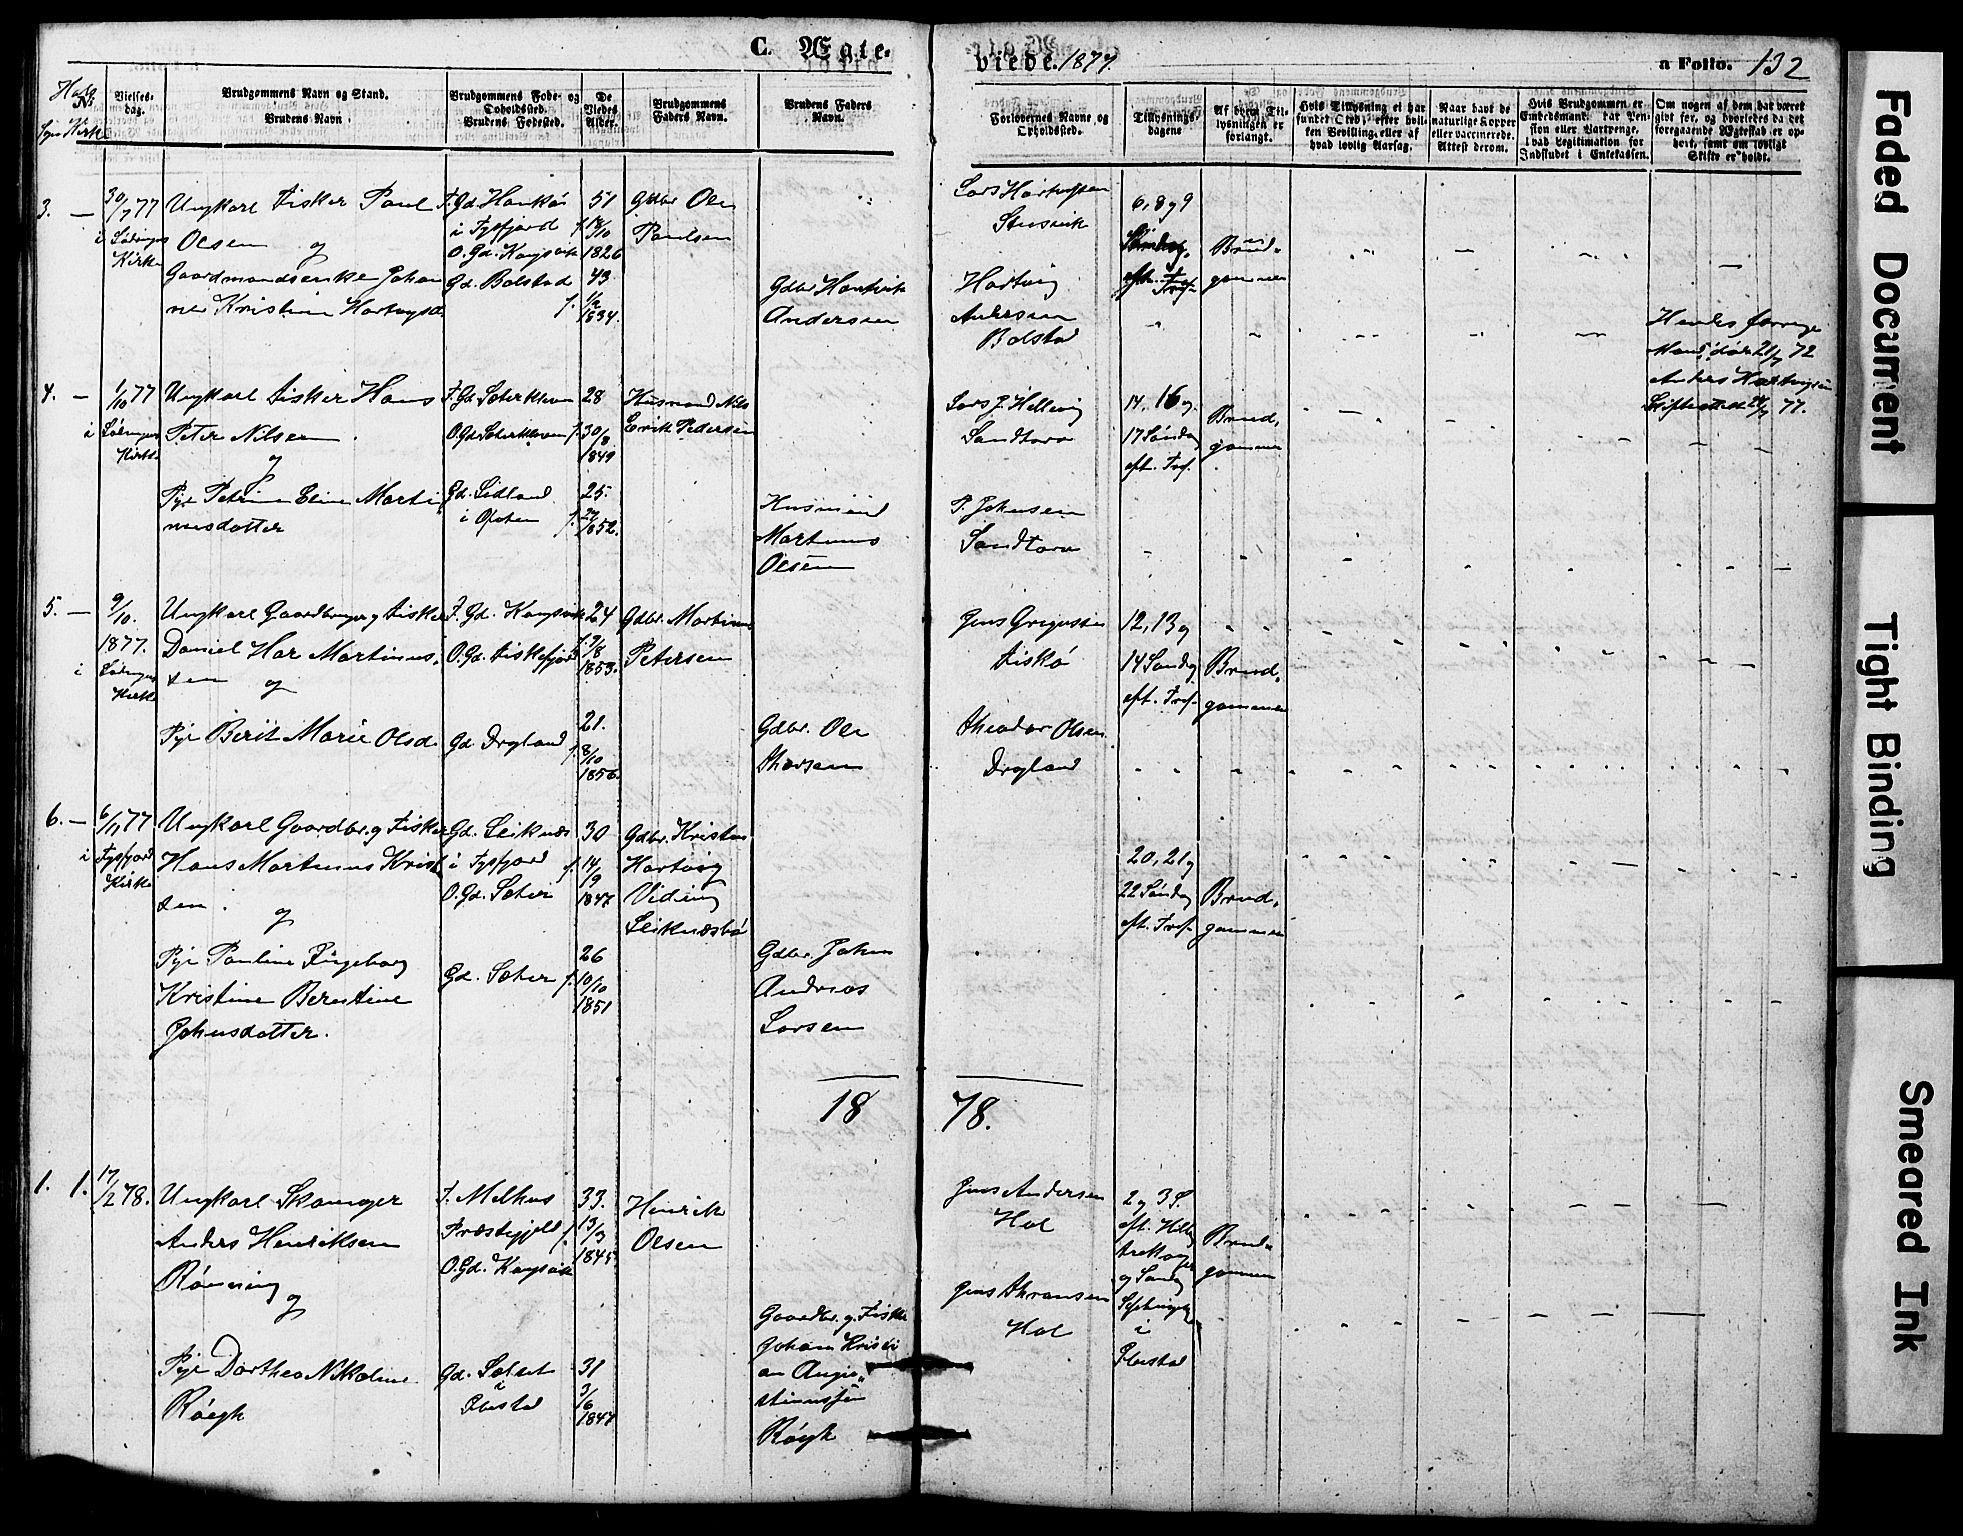 C. Ægte-
viede. 1877.
a Folio. 132
Vielses-
dag.
Brudgommens Navn og Stand.
Brudens Navn.
Brudgommens Føde- og
Opholdssted.
Brudens Fødested.
De
Viedes
Alder.
Brudgommens
Faders Navn.
Brudens Faders
Navn.
Forlovernes Navne og
Opholdssted.
Tillysnings-
dagene
Af hvem Til-
lysningen er
forlangt.
Hvis Tillysning ei har
fundet Sted, efter hvil-
ken Bevilling, eller af
hvad lovlig Aarsag.
Naar havt de
naturlige Kopper
eller vaccinerede.
Attest derom.
Hvis Brudgommen er
Embedsmand, har Pen-
sion eller Vartpenge,
hvad Legitimation for
Indskudet i Enkekassen.
Om nogen af dem har været
givt før, og hvorledes da det
foregaaende Ægteskab er op-
hørt, samt om lovligt
Skifte er holdt.
3. —
30/7 77
i Lødingen
Kirke
Ungkarl Fisker Paul
Olsen og
Gaardmandsenke Johan
ne Kristine Hartvigsd.
i Tysfjord
Gd. Bolstad
51
f. 19/10
1826
43
1834.
Gdbr. Ole
Paulsen
Gdbr. Hartvik
Andersen
Lars Hartvigsen
Hartvig
Andersen
Bolstad
6, 8 og 9
Søndag
eft. Tref.
Brud-
gommen
Hendes forrige
Mand døde 21/7 72
Anders Hartvigsen
4. —
1/10 77
i Lødingen
Kirke
Ungkarl Fisker Hans
Peter Nilsen
og
Pige Petrine Eline Marti
nusdatter
28
f. 30/8
1849
25.
1852.
Husmand Nils
Erik Pedersen
Husmand
Martinus
Olsen
Lars J. Hellevig
Sandtorv
P. Johnsen
Sandtorv
14, 16 og
17 Søndag
eft. Tref.
Brud-
gommen
5. —
9/10.
1877.
i Lødingen
Kirke
Ungkarl Gaardbruger og Fisker
Daniel Har Martinus-
sen og
Pige Berit Marie Olsd.
F. Gd. Kongsvik
O. Gd. Fiskefjord
Gd. Dragland
24
f. 9/8
1853.
21.
f. 8/10
1856.
Gdbr. Martinus
Petersen
Gdbr. Ole
Thorsen
Jens Gregusen
Fiskø
Theodor Olsen
Dragland
12, 13 og
14 Søndag
eft. Tref.
Brud-
gommen
6. —
6/11 77
i Tysfjord
Kirke
Ungkarl Gaardbr. og Fisker
Hans Martinus Krist
sen. og
Pige Pauline Ingeborg
Kristine Berntine
Johnsdatter.
Gd. Leiknæs
i Tysfjord
O. Gd. Sæter
Gd. Sæter
30
f. 14/9
1847
26
f. 10/10
1851
Gdbr. Kristen
Hartvig
Viding
Leiknæsbø
Gdbr. John
Andreas
Larsen
20, 21 og
22 Søndag
eft. Tref.
Brud-
gommen
18 78.
1. 1.
17/2 78.
Ungkarl Skomager
Anders Henriksen
Rønning
og
Pige Dorthea Nikoline
Røegh
F. Melhus
Præstegjeld
O. Gd. Kongsvik
33.
f. 13/3
1845
31
3/6
1847
Henrik
Olsen
Gaardbr. og Fisker
Johan Kristi
an Augu-
stinussen
Røegh
Jens Andersen
Hol
Jens Thronsen
Hol
2 og 3 S.
Brud-
gommen
Faded Document
Tight Binding
Smeared Ink